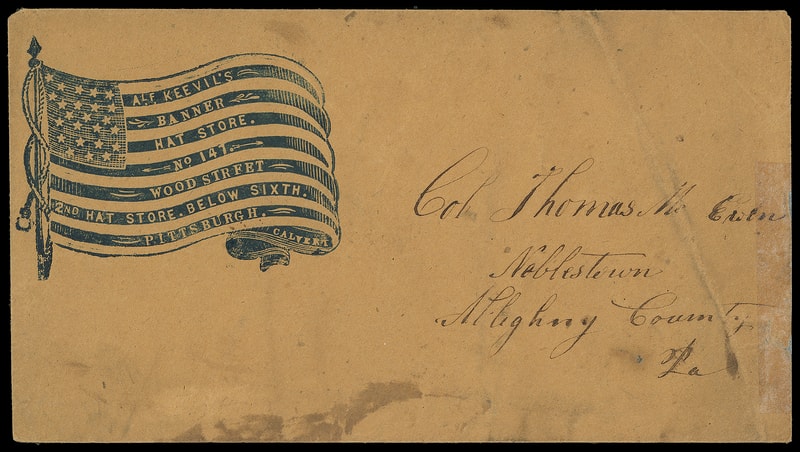 ALF KEEVIL'S
BANNER
HAT STORE.
No 147.
WOOD STREET
2ND HAT STORE. BELOW SIXTH.
PITTSBURGH.
CALVERT
Col Thomas Mc Ewen
Noblestown
Alleghny County
Pa